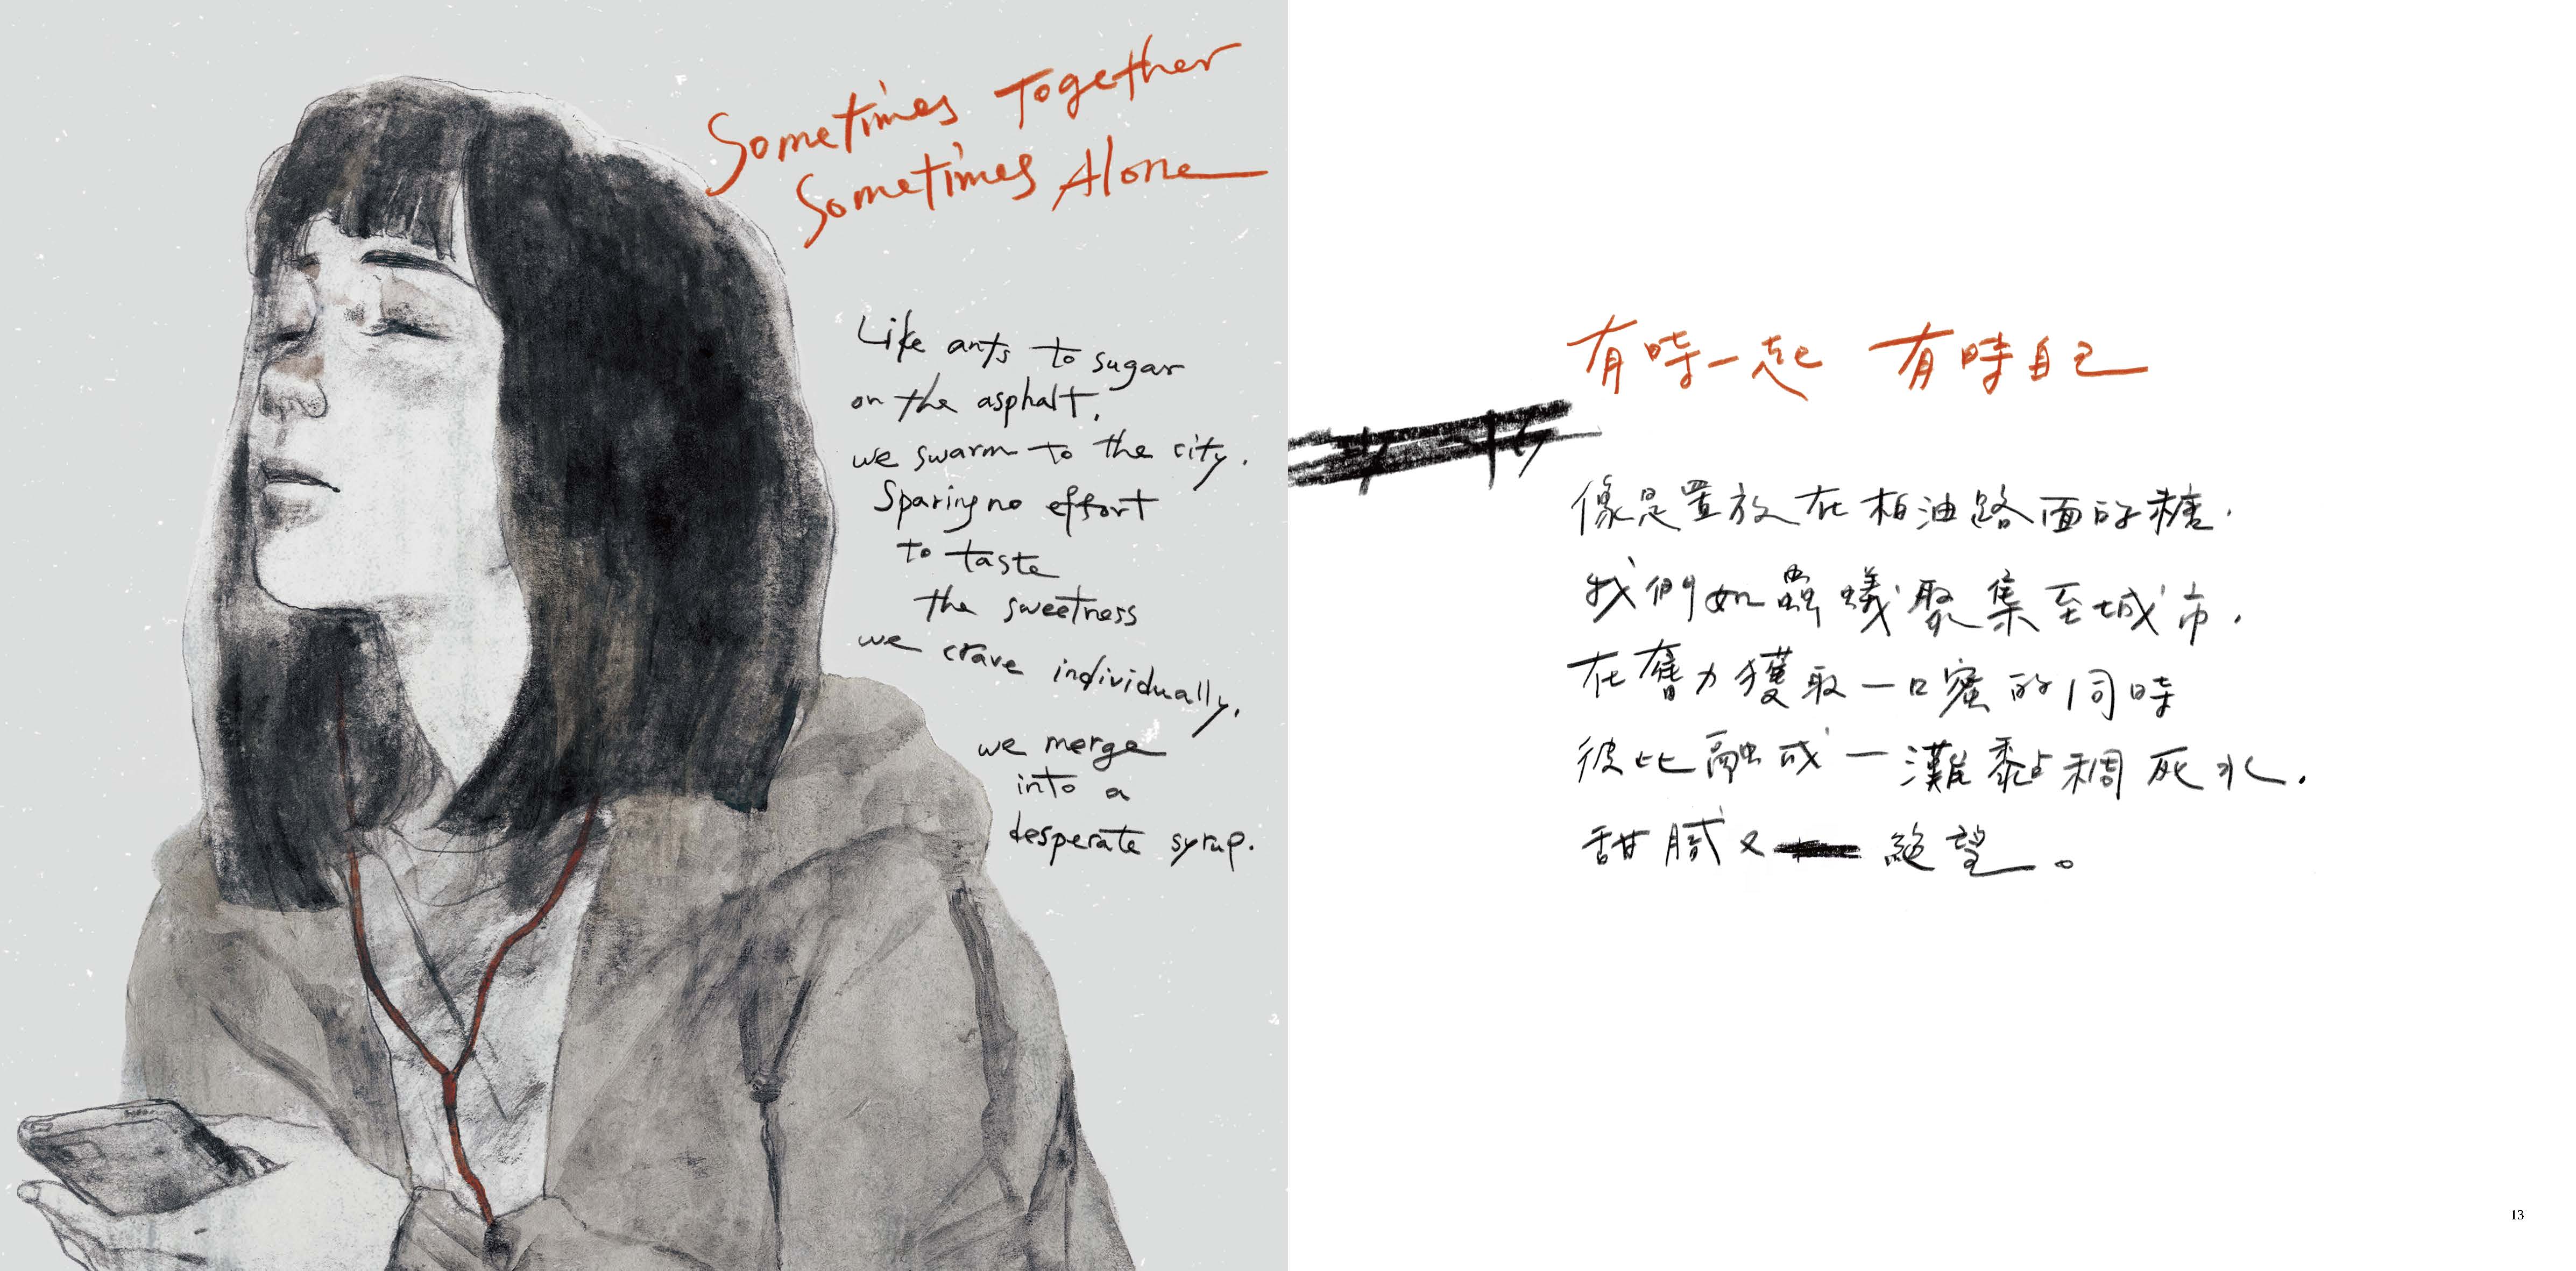 Sometimes Together
Sometimes Alone
Like ants to sugar
on the asphalt,
we swarm to the city.
Sparing no effort
to taste
the sweetness
we crave individually,
we merge
into a
desperate syrup.
有時一起 有時自己
像是置放在柏油路面的糖,
我們如螞蟻聚集至城市,
在奮力獲取一口蜜的同時
彼此融成一灘黏稠死水,
甜膩又絕望。
13